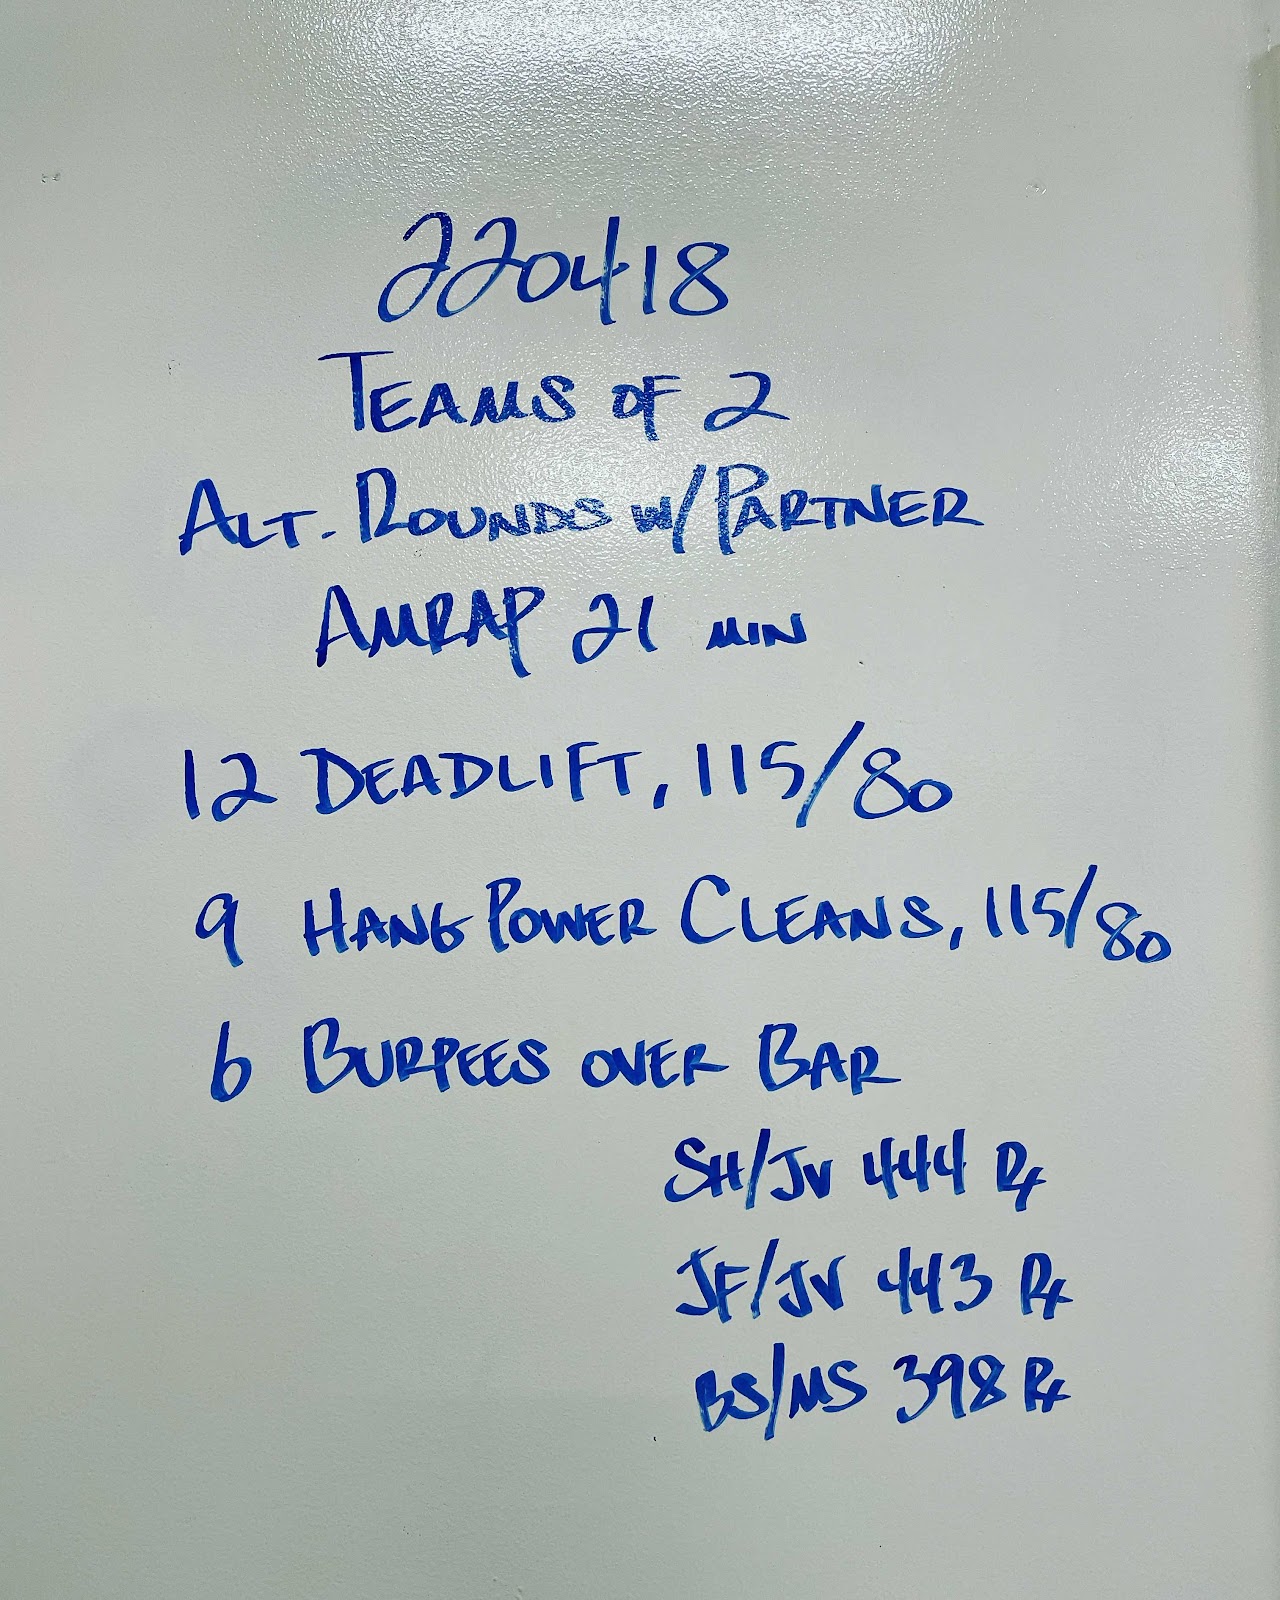 220418
TEAMS OF 2
ALT. ROUNDS W/PARTNER
AMRAP 21 MIN
12 DEADLIFT, 115/80
9 HANG POWER CLEANS, 115/80
6 BURPEES OVER BAR
SH/JV 444 Rx
JF/JV 443 Rx
BS/MS 398 Rx